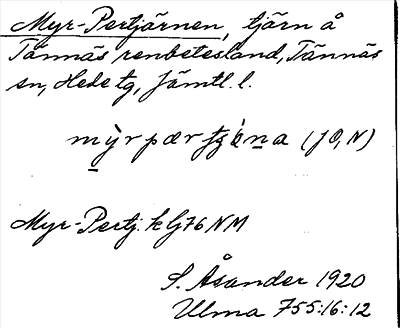 Myr-Pertjärnen, tjärn å
Tännäs renbetesland, Tännäs
sn, Hede tg, Jämtl. l.
(JO, N)
Myr-Pertj. k G76 NM
S. Åsander 1920
Ulma 755:16:12